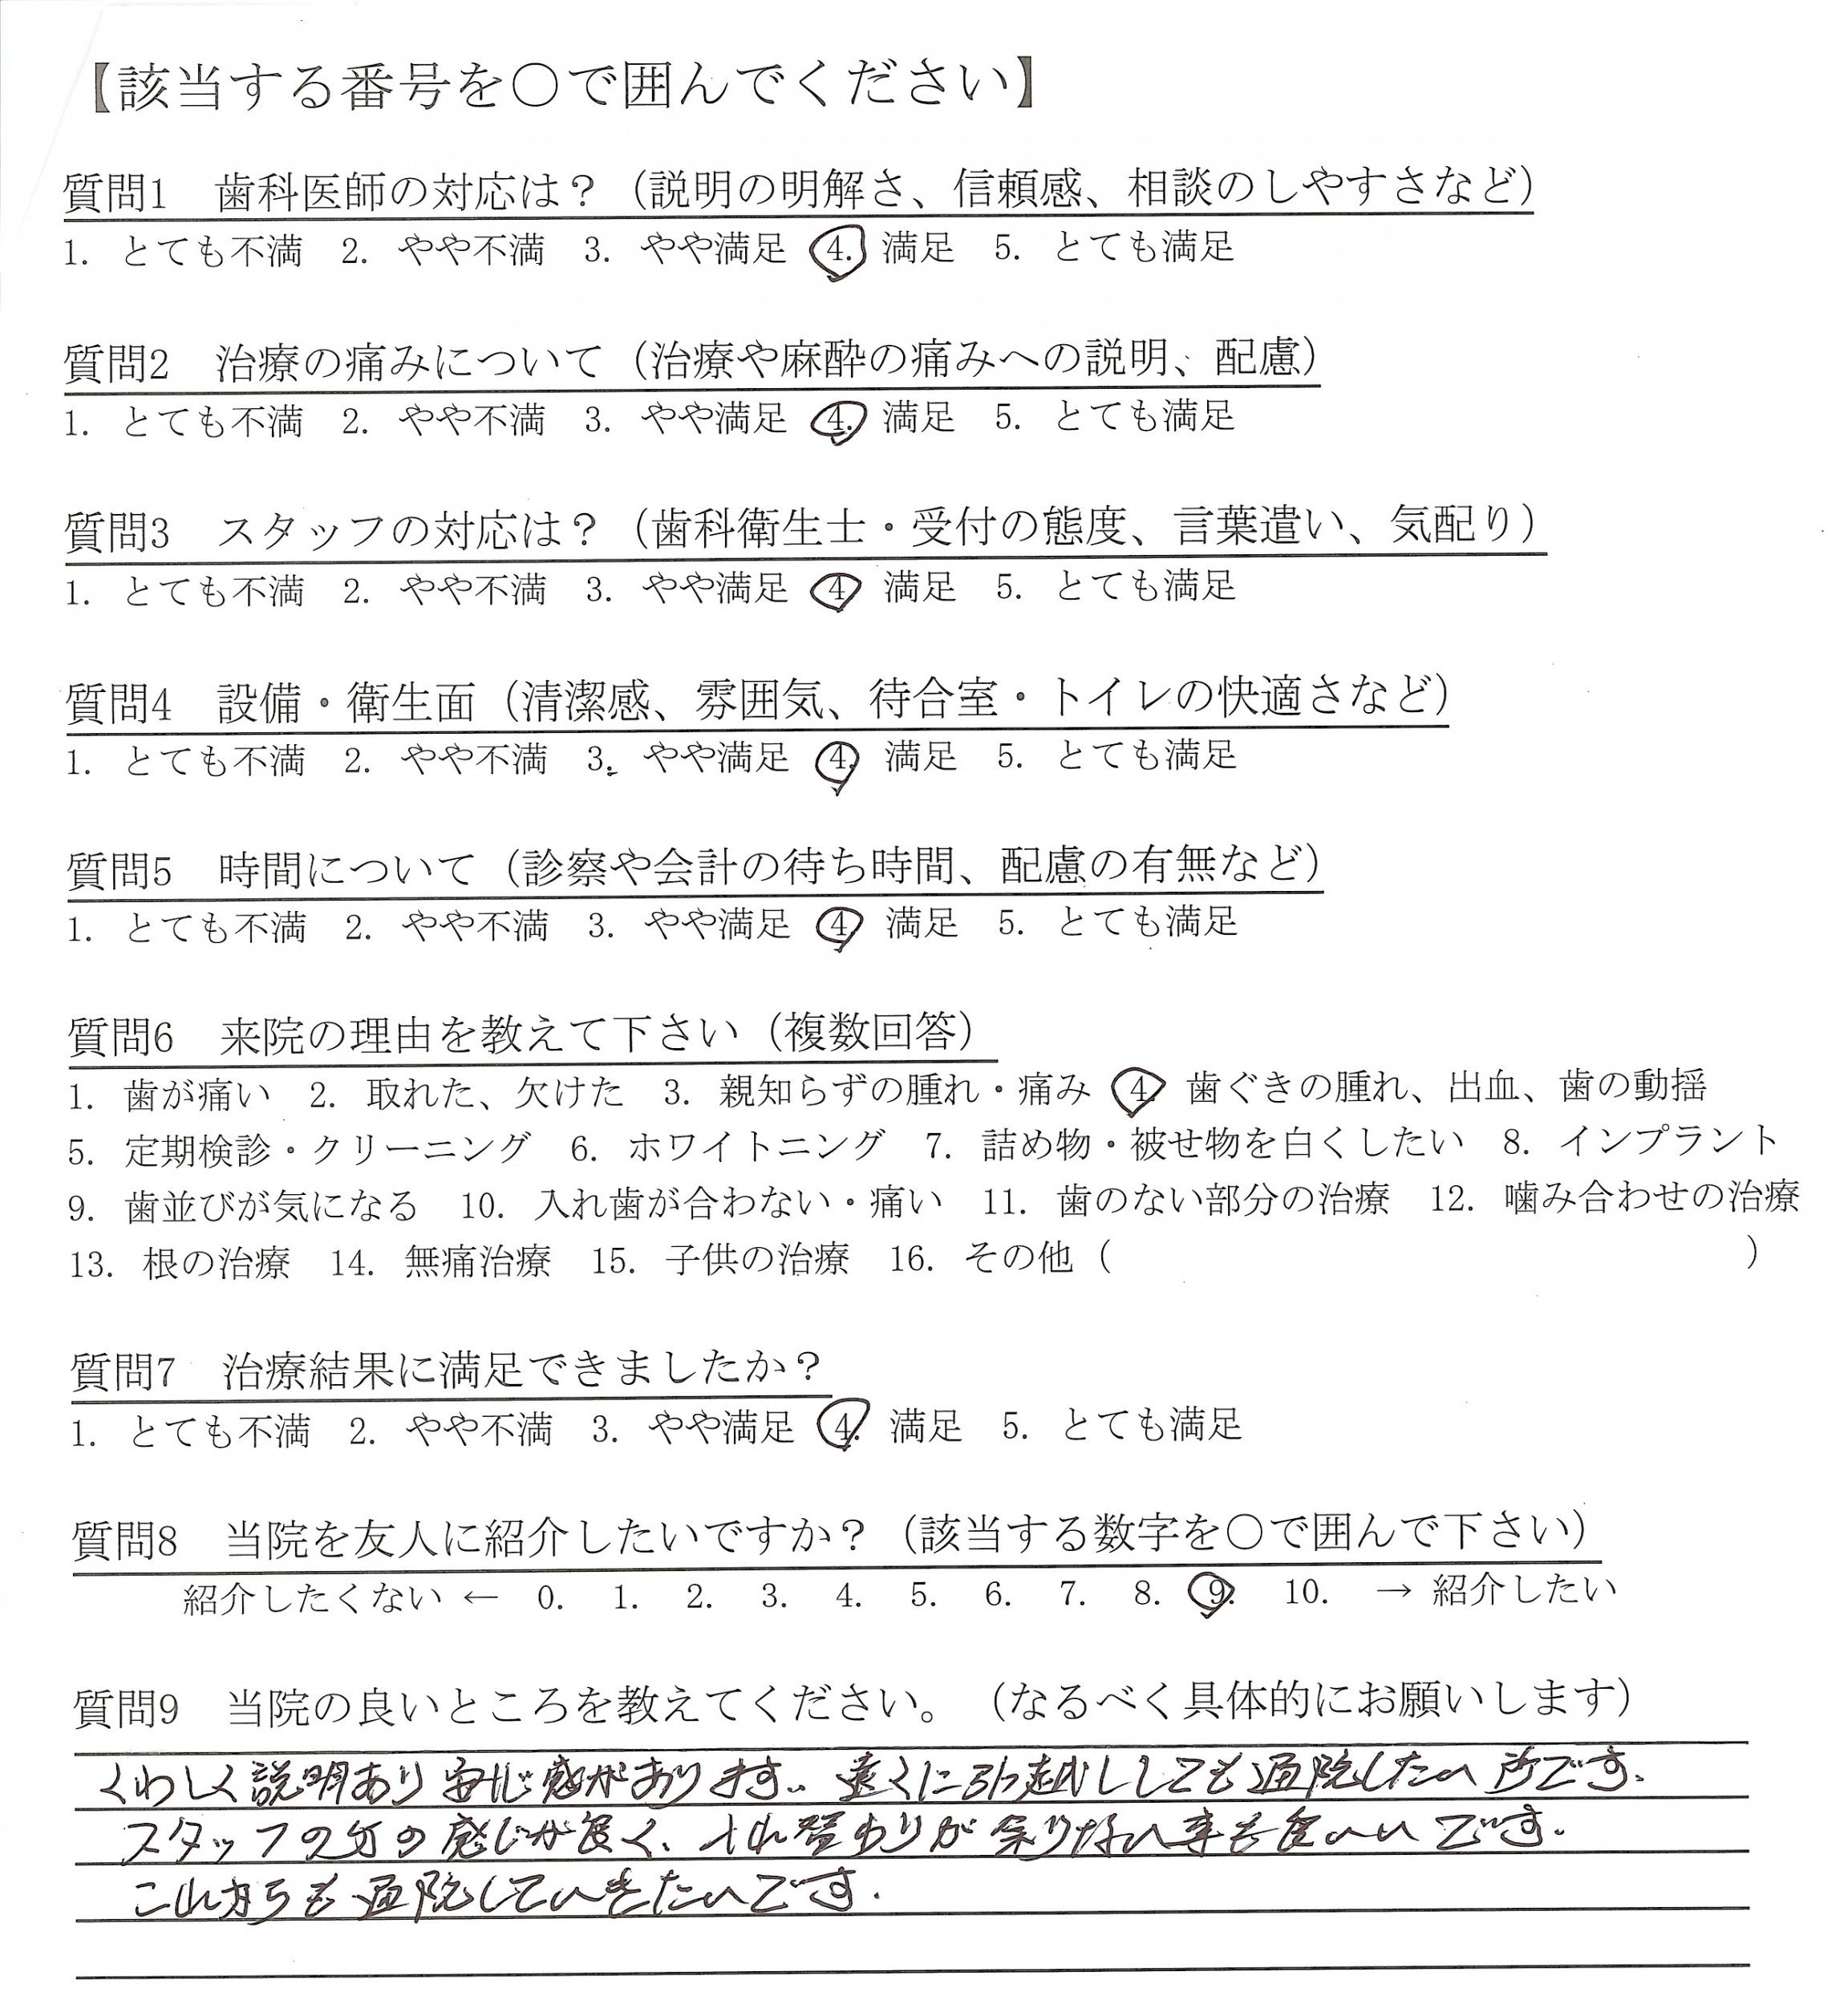 【該当する番号を〇で囲んでください】
質問1　歯科医師の対応は？（説明の明解さ、信頼感、相談のしやすさなど）
1. とても不満　2. やや不満　3. やや満足　4. 満足　5. とても満足
質問2　治療の痛みについて（治療や麻酔の痛みへの説明、配慮）
1. とても不満　2. やや不満　3. やや満足　4. 満足　5. とても満足
質問3　スタッフの対応は？（歯科衛生士・受付の態度、言葉遣い、気配り）
1. とても不満　2. やや不満　3. やや満足　4　満足　5. とても満足
質問4　設備・衛生面（清潔感、雰囲気、待合室・トイレの快適さなど）
1. とても不満　2. やや不満　3. やや満足　4. 満足　5. とても満足
質問5　時間について（診察や会計の待ち時間、配慮の有無など）
1. とても不満　2. やや不満　3. やや満足　4. 満足　5. とても満足
質問6　来院の理由を教えて下さい（複数回答）
1. 歯が痛い　2. 取れた、欠けた　3. 親知らずの腫れ・痛み　4. 歯ぐきの腫れ、出血、歯の動揺
5. 定期検診・クリーニング　6. ホワイトニング　7. 詰め物・被せ物を白くしたい　8. インプラント
9. 歯並びが気になる　10. 入れ歯が合わない・痛い　11. 歯のない部分の治療　12. 噛み合わせの治療
13. 根の治療　14. 無痛治療　15. 子供の治療　16. その他（　　　）
質問7　治療結果に満足できましたか？
1. とても不満　2. やや不満　3. やや満足　4. 満足　5. とても満足
質問8　当院を友人に紹介したいですか？（該当する数字を〇で囲んで下さい）
紹介したくない ← 0. 1. 2. 3. 4. 5. 6. 7. 8. 9. 10. → 紹介したい
質問9　当院の良いところを教えてください。（なるべく具体的にお願いします）
くわしく説明あり安心感があります。遠くに引越ししても通院したい所です.
スタッフの方の感じが良く、入れ替わりが余りない事もいいです.
これからも通院していきたいです.